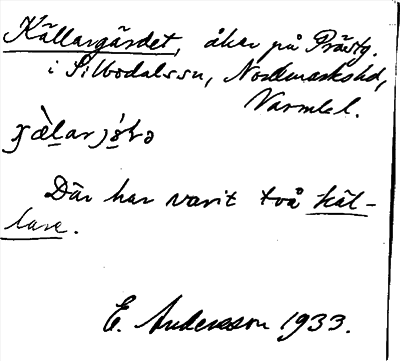 Källargärdet, åker på Prästg.
i Silbodalssn, Nordmarkshd,
Värml l.
Där har varit två käl-
lare.
E. Andersson 1933.